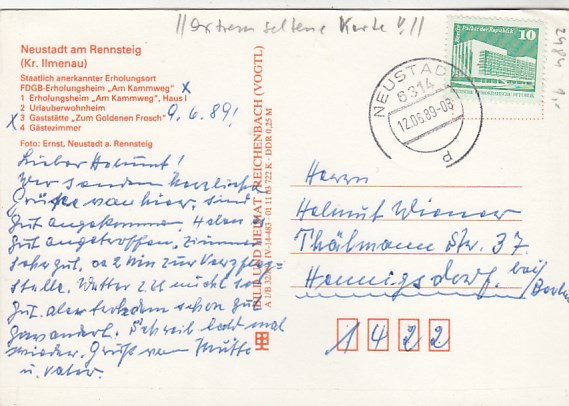 // extrem seltene Karte !! //
Neustadt am Rennsteig
(Kr. Ilmenau)
Staatlich anerkannter Erholungsort
FDGB-Erholungsheim „Am Kammweg" x
1 Erholungsheim „Am Kammweg", Haus I
2 Urlauberwohnheim
x 3 Gaststätte „Zum Goldenen Frosch" 9.6.89!
4 Gästezimmer
Foto: Ernst, Neustadt a. Rennsteig
Lieber Helmut!
Wir senden herzliche
Grüße von hier, sind
gut angekommen. Haben es
gut angetroffen, Zimmer
sehr gut, ca 2 Min zur Verpfleg-
stelle. Wetter z.Z. nicht so
gut, aber trotzdem schon gut
gewandert. Schreib bald mal
wieder. Gruß von Mutti
u. Vater.
BILD UND HEIMAT REICHENBACH (VOGTL)
IV-14-483 · 01 11 03 722 K · DDR 0,25 M
NEUSTADT
6314
12.06.89-08
p
10
2484
1,-
Herrn
Helmut Wiener
Thälmann Str. 37
Hennigsdorf. bei/
Berlin
1422